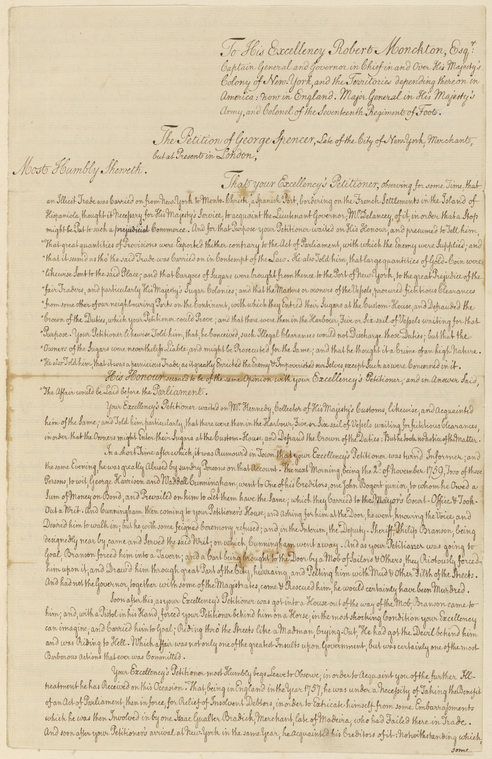 To His Excellency Robert Monckton, Esqr.
Captain General and Governor in Chief in and Over His Majesty's
Colony of New York, and the Territories depending thereon in
America: now in England. Major General in His Majesty's
Army, and Colonel of the Seventeenth Regiment of Foot.
The Petition of George Spencer, Late of the City of New York, Merchant,
but at Present in London;
Most Humbly Sheweth.
That your Excellency's Petitioner, observing for some Time, that
an Illicit Trade was Carried on from New York to Monte Christi, a Spanish Port, bordering on the French Settlements in the Island of
Hispaniola, thought it Necessary, for His Majesty's Service, to acquaint the Lieutenant Governor, Mr. Delancey, of it, in order that a Stop
might be Put to such a prejudicial Commerce. And for that Purpose your Petitioner waited on His Honour, and presumed to tell him,
"that great Quantities of Provisions were Exported thither contrary to the Act of Parliament, with which the Enemy were Supplied; and
"that it seem'd as tho' the said Trade was Carried on in Contempt of the Laws. He also Told him, that large Quantities of Gold-Coin were
"likewise Sent to the said Place; and that Cargoes of Sugars were brought from thence to the Port of New York, to the great Prejudice of the
"fair Traders, and particularly His Majesty's Sugar Colonies; and that the Masters or owners of the Vessels procured fictitious Clearances
"from some other of our neighbouring Ports on the Continent, with which they Entered their Sugars at the Custom-House, and Defrauded the
"Crown of the Duties, which your Petitioner could Prove; and that there were then in the Harbour, Five or Six sail of Vessels waiting for that
"Purpose. Your Petitioner likewise Told him, that he conceived, such Illegal Clearances would not Discharge those Duties; but that the
"Owners of the Sugars were nevertheless Liable, and might be Prosecuted for the Same; and that he thought it a Crime of an high Nature.
"He also Told him that it was a pernicious Trade, as it greatly Enriched the Enemy & Impoverished our Selves, except Such as were Concerned in it.
His Honour seemed to be of the same Opinion with your Excellency's Petitioner; and in Answer Said,
The Affair would be Laid before the Parliament.
Your Excellency's Petitioner waited on Mr. Kennedy, Collector of His Majesty's Customs, likewise, and Acquainted
him of the Same; and Told him particularly, that there were then in the Harbour, Five or Six sail of Vessels waiting for fictitious Clearances,
in order that the Owners might Enter their Sugars at the Custom-House, and Defraud the Crown of the Duties: But he took no Notice of the Matter.
In a short Time after which, it was Rumoured in Town that your Excellency's Petitioner was turn'd Informer; and
the same Evening he was greatly Abused by sundry Persons on that Account. The next Morning being the 2d. of November 1759, Two of those
Persons, to wit, George Harrison, and Waddell Cunningham, went to One of his Creditors, one John Bogert junior, to whom he Owed a
Sum of Money on Bond, and Prevailed on him to let them have the Same; which they Carried to the Mayor's Court-Office & Took-
Out a Writ. And Cunningham then coming to your Petitioner's House, and Asking for him at the Door, he went, knowing the Voice, and
Desired him to walk in; but he with some feigned Ceremony refused; and in the Interim, the Deputy-Sheriff, Philip Branson, being
designedly near by, came and Served the said Writ; on which Cunningham went away. And as your Petitioner was going to
Goal, Branson forced him into a Tavern; and a Cart being brought to the Door by a Mob of Sailors & Others, they Riotously forced
him upon it, and Draw'd him through great Part of the City, huzzaing, and Pelting him with Mud & Other Filth of the Streets.
And had not the Governor, together with some of the Magistrates, come & Rescued him, he would certainly have been Murdered.
Soon after this, as your Excellency's Petitioner was got into a House out of the way of the Mob, Branson came to
him; and, with a Pistol in his Hand, forced your Petitioner behind him on a Horse, in the most shocking Condition your Excellency
can imagine, and Carried him to Goal; Riding thro' the Streets like a Madman, Crying-Out "He had got the Devil behind him
and was Riding to Hell. Which affair was not only one of the greatest Insults upon Government, but was certainly one of the most
Barbarous Actions that ever was Committed.
Your Excellency's Petitioner most Humbly begs Leave to Observe, in order to Acquaint you of the further Ill-
treatment he has Received on this Occasion. That being in England in the Year 1757, he was under a Necessity of Taking the Benefit
of an Act of Parliament, then in force, for Relief of Insolvent Debtors, in order to Extricate himself from some Embarrassments
which he was then Involved in by one Isaac Gualter Bradick, Merchant, late of Madeira, who had Failed there in Trade.
And soon after your Petitioner's arrival at New York in the same Year, he Acquainted his Creditors of it: Notwithstanding which,
some